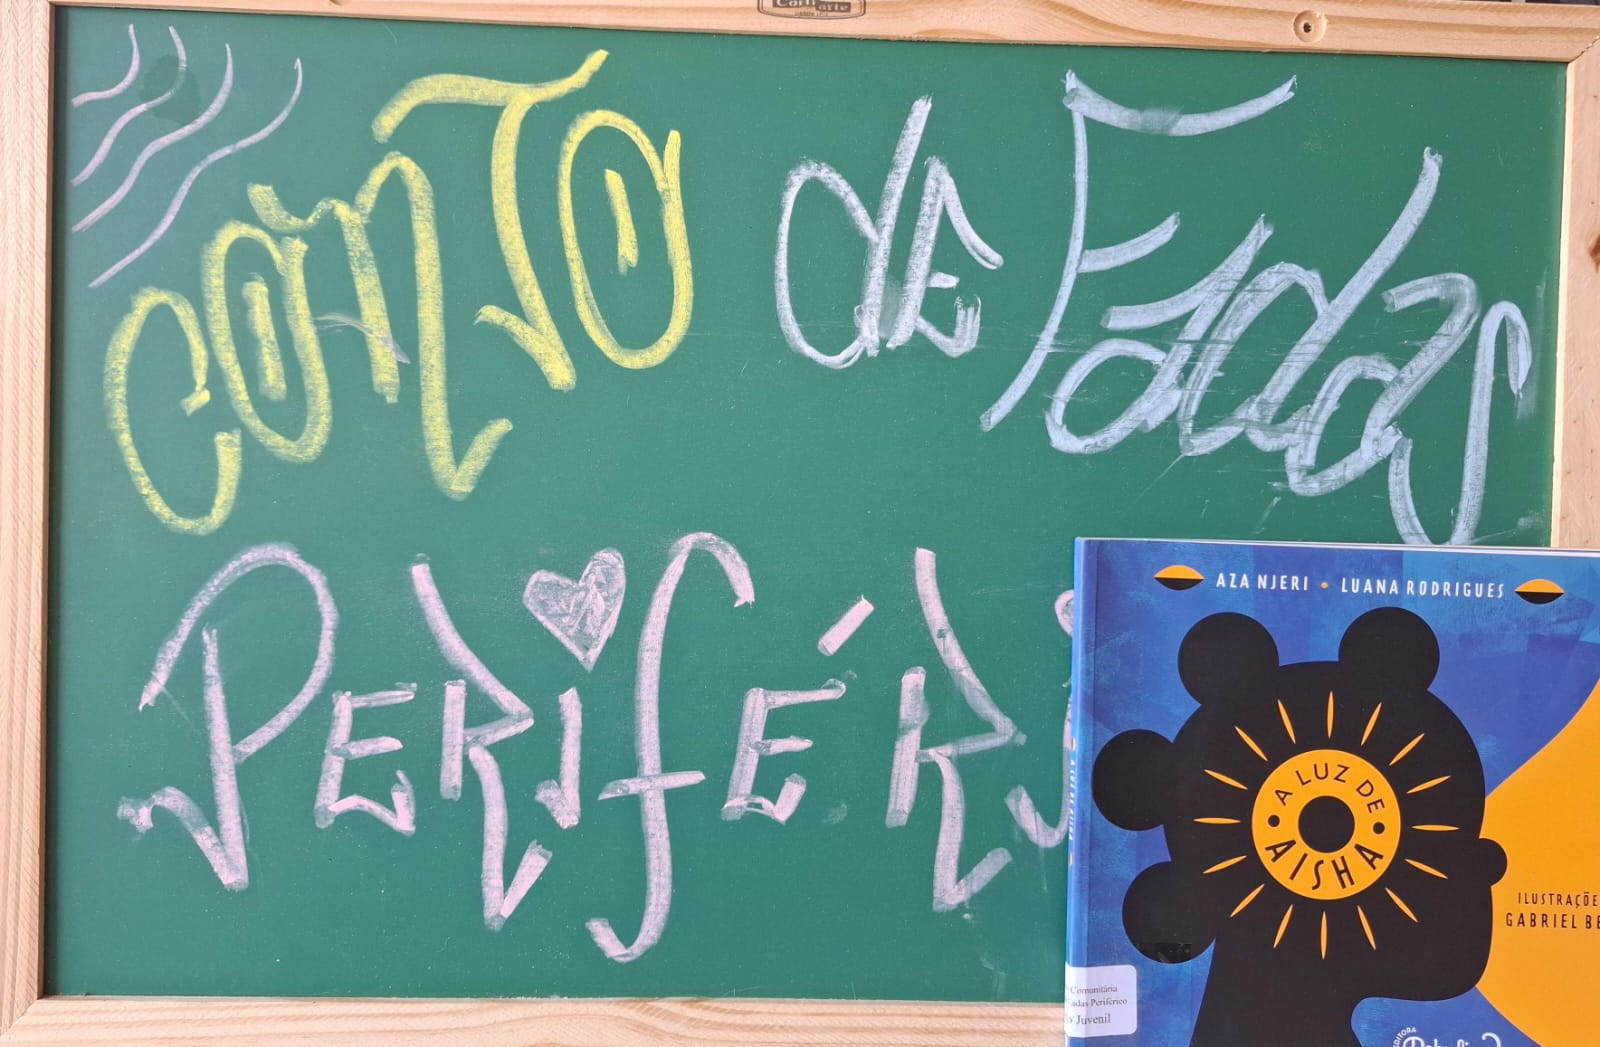 CONTO de Fadas
PERIFÉRI
AZA NJERI • LUANA RODRIGUES
A LUZ DE
AISHA
ILUSTRAÇÕE
GABRIEL BE
Comunitária
adas Periférico
Juvenil
EDITORA